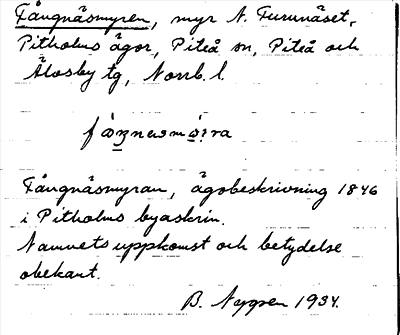 Fångnäsmyren, myr N. Furunäset,
Pitholms ägor, Piteå sn, Piteå och
Älvsby tg, Norrb. l.
Fångnäsmyran, ägobeskrivning 1846
i Pitholms byaskrin.
Namnets uppkomst och betydelse
obekant.
B. Nygren 1934.